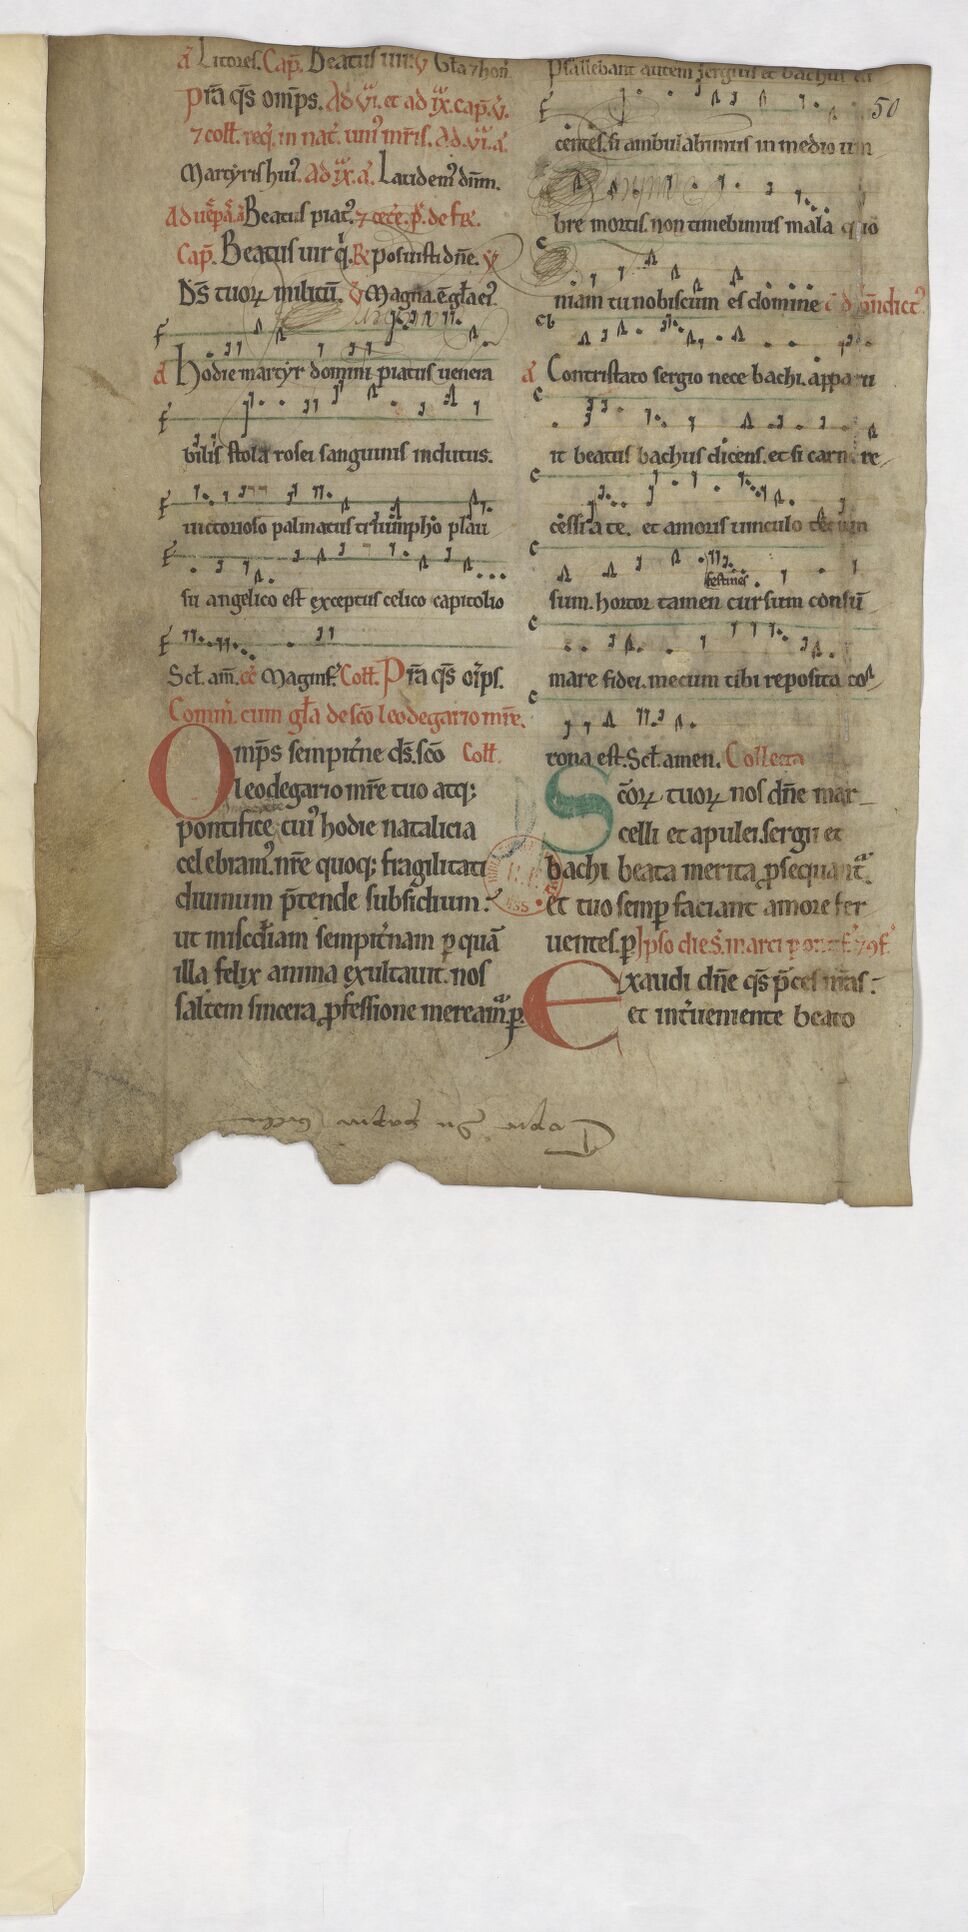 a᷎ Litores. Cap̄. Beatus uir. V Gła ⁊ hon̄.
Pr̄a q̄s om̄ps. Ad vi. et ad ix. cap̄. v᷎.
⁊ coll̄. req᷎. in nat᷎. uni᷎ mr̄is. Ad. vi. a᷎.
Martyris hui᷎. Ad ix. a᷎. Laudem᷎ dn̄m.
Beatus piat᷎. ⁊ cet᷎e. p᷎. de
Cap̄. Beatus uir q᷎. R᷎ posuisti dn̄e. V
D̄s tuoꝝ militū. V Magna. ē gła ei᷎.
a᷎ Hodie martyr domini piatus venera
bilis stola rosei sanguinis inclitus.
uictorioso palmatus triumpho plau
su angelico est exceptus celico capitolio
Scł. am̄. c᷎e Magnif᷎. Coll̄. Pr̄a q̄s om̄ps.
Comm᷎. cum gła de sc̄o leodegario mr̄e.
Omp̄s sempit᷎ne d̄s. sc̄o Coll̄.
leodegario mr̄e tuo atq;
pontifice cui᷎ hodie natalicia
celebram᷎. nr̄e quoq; fragilitati
diuinum p̄tende subsidium.
ut misc̄diam sempit᷎nam ꝑ quā
illa felix anima exultauit. nos
saltem sincera ꝓfessione meream᷎. ꝑ.
Copie du papier
50
Psallebant autem sergius et bachus di
centes. si ambulabimus in medio um
bre mortis. non timebimus mala quo
niam tu nobiscum es domine
a᷎ Contristato sergio nece bachi. apparu
it beatus bachus dicens. et si carne re
cessi a te. et amoris uinculo tecum
festines
sum. hortor tamen cursum consū
mare fidei. mecum tibi reposita co
rona est. Scł. amen. Collecta
Sc̄oꝝ tuoꝝ nos dn̄e mar
celli et apulei. sergii et
bachi beata merita ꝓsequant᷎.
et tuo semꝑ faciant amore fer
uentes. ꝑ. Ipso die. S᷎. marci
Exaudi dn̄e q̄s p̄ces nr̄as.
et int᷎ueniente beato